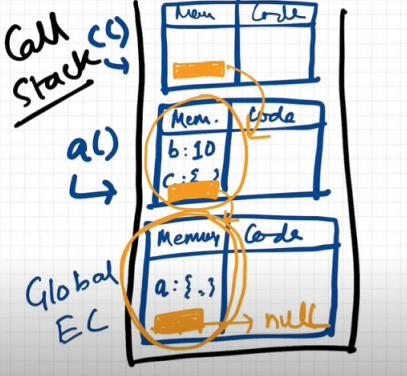 Call
Stack
c()
Mem Code
a()
Mem. Code
b:10
c:{ }
Global
EC
Memory Code
a:{..}
null